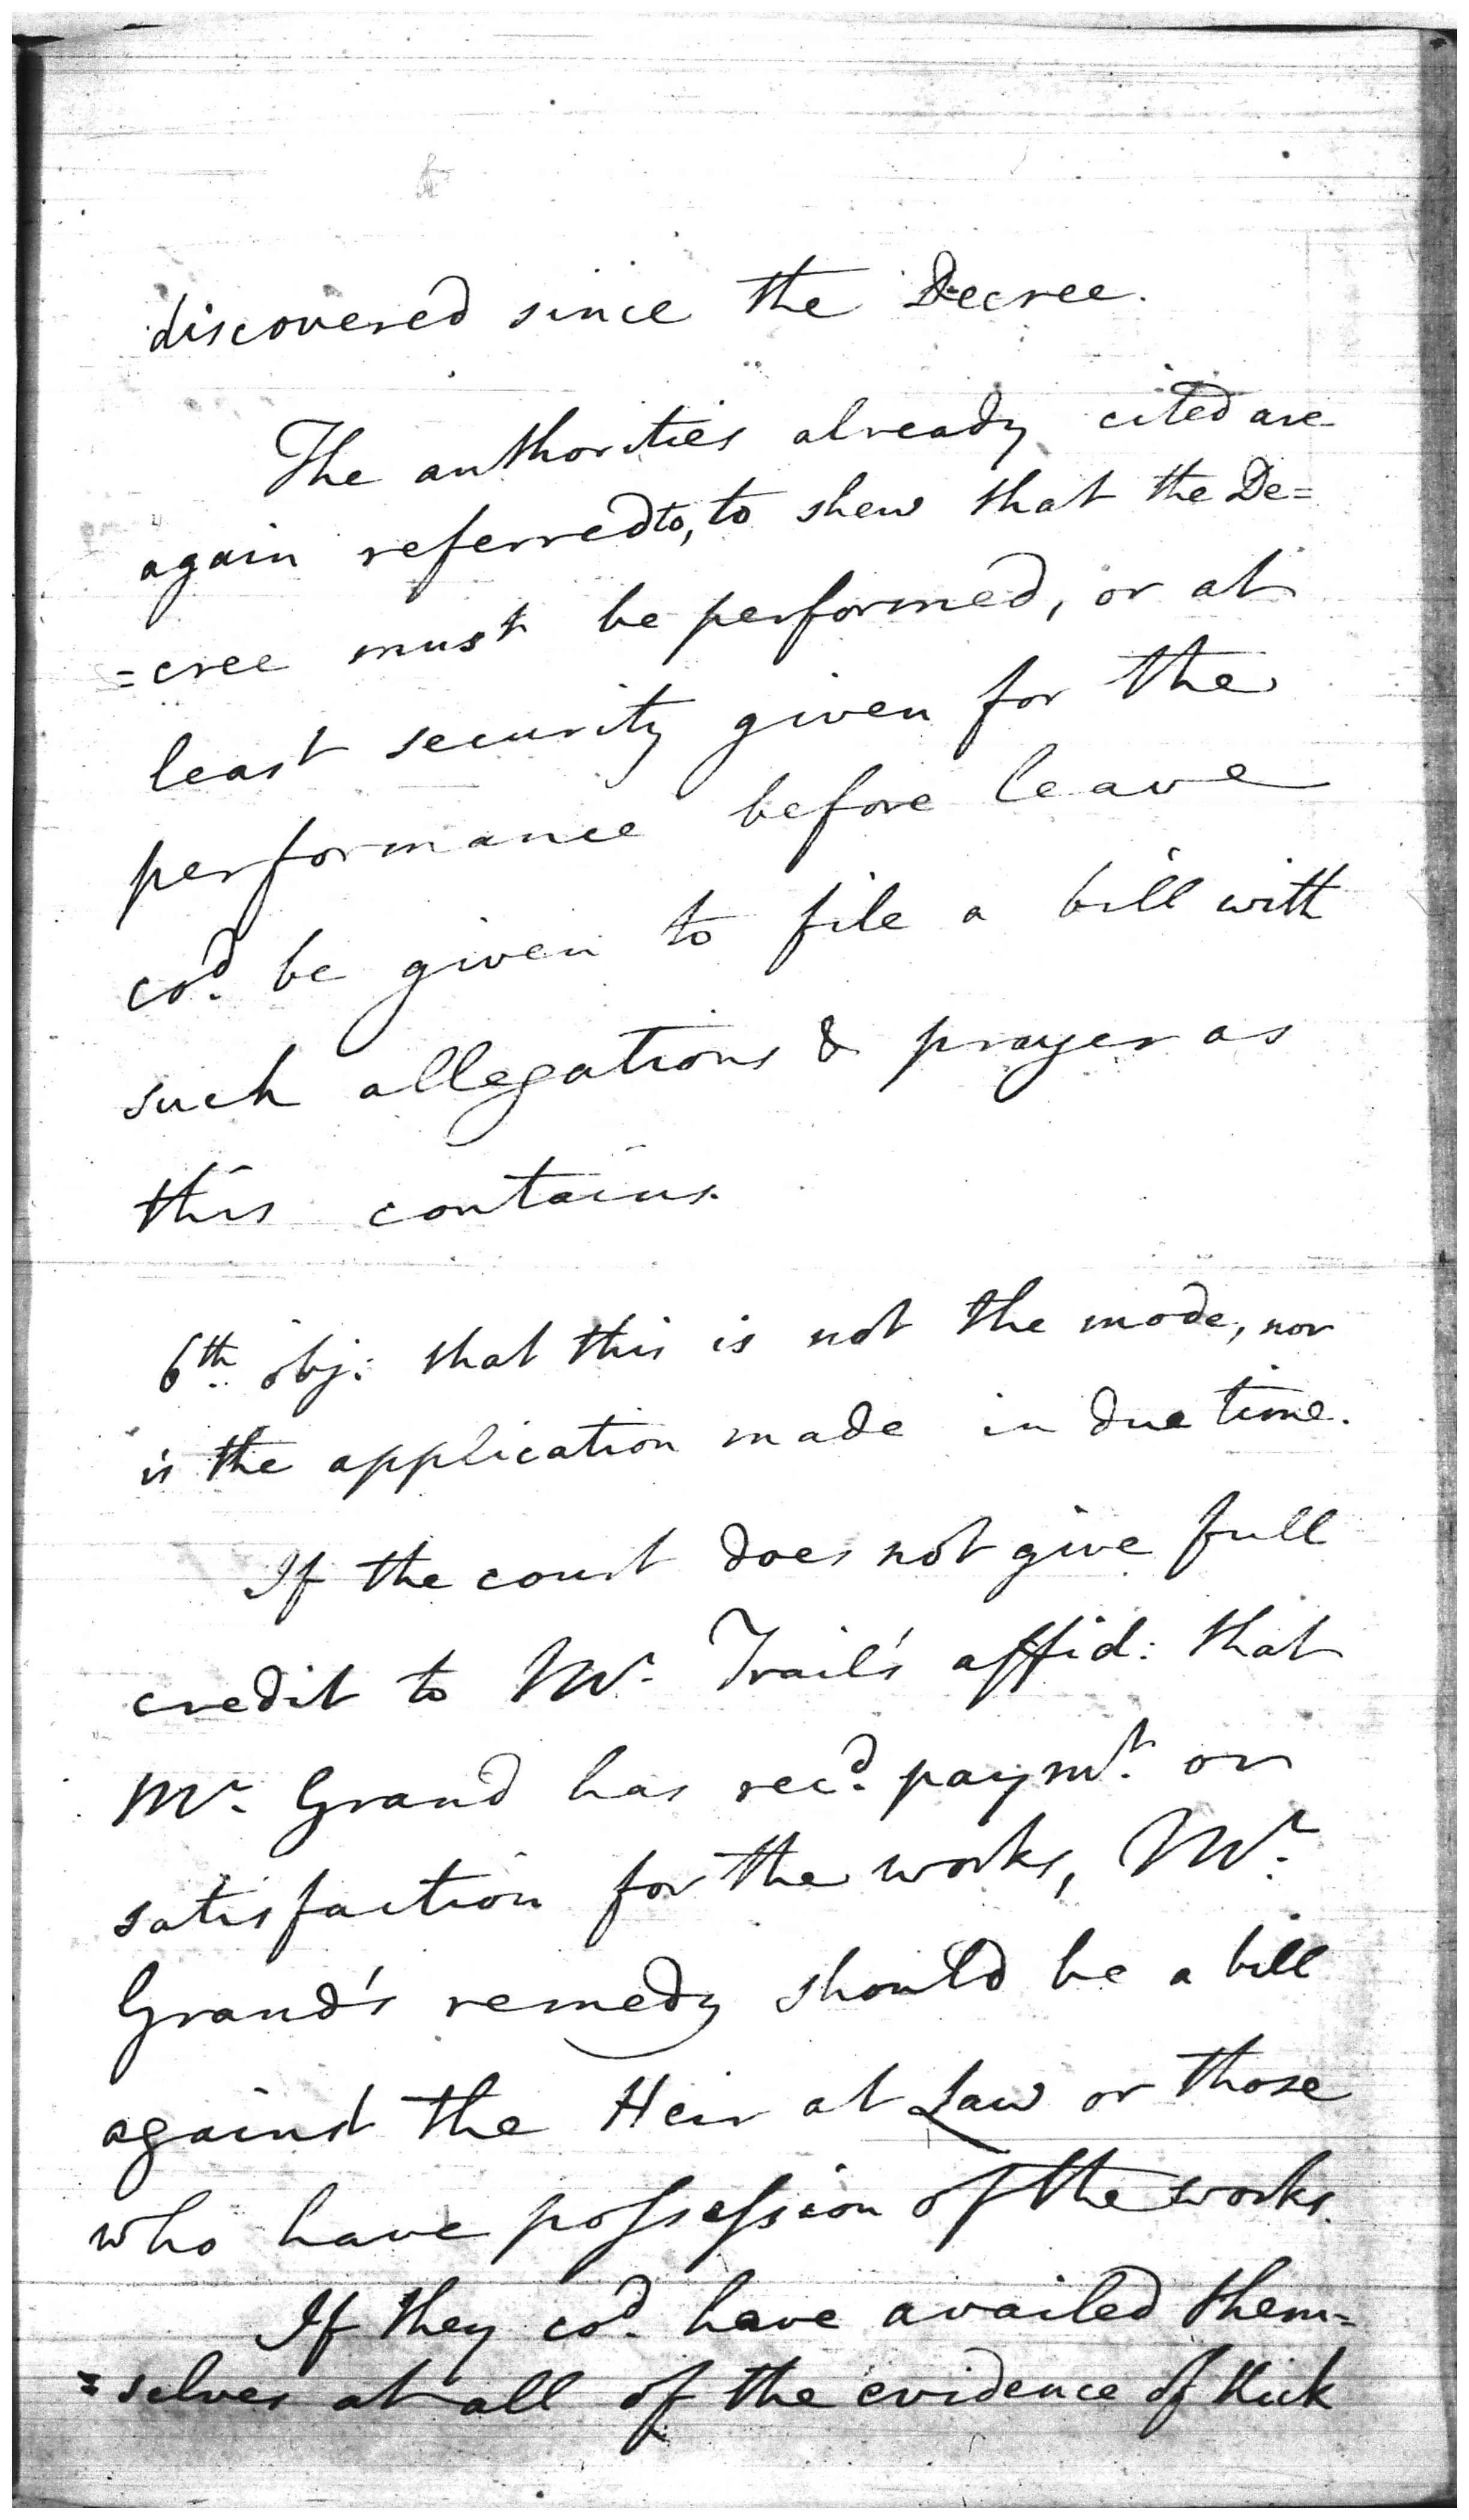 discovered since the Decree.
The authorities already cited are
again referred to, to shew that the De=
=cree must be performed, or at
least security given for the
performance before leave
cod. be given to file a bill with
such allegations & prayer as
this contains.
6th obj: that this is not the mode, nor
is the application made in due time.
If the court does not give full
credit to Mr. Trail's affid: that
Mr. Grand has recd. paymt. or
satisfaction for the works, Mr.
Grand's remedy should be a bill
against the Heir at Law or those
who have possession of the works.
If they cod. have availed them=
=selves at all of the evidence of